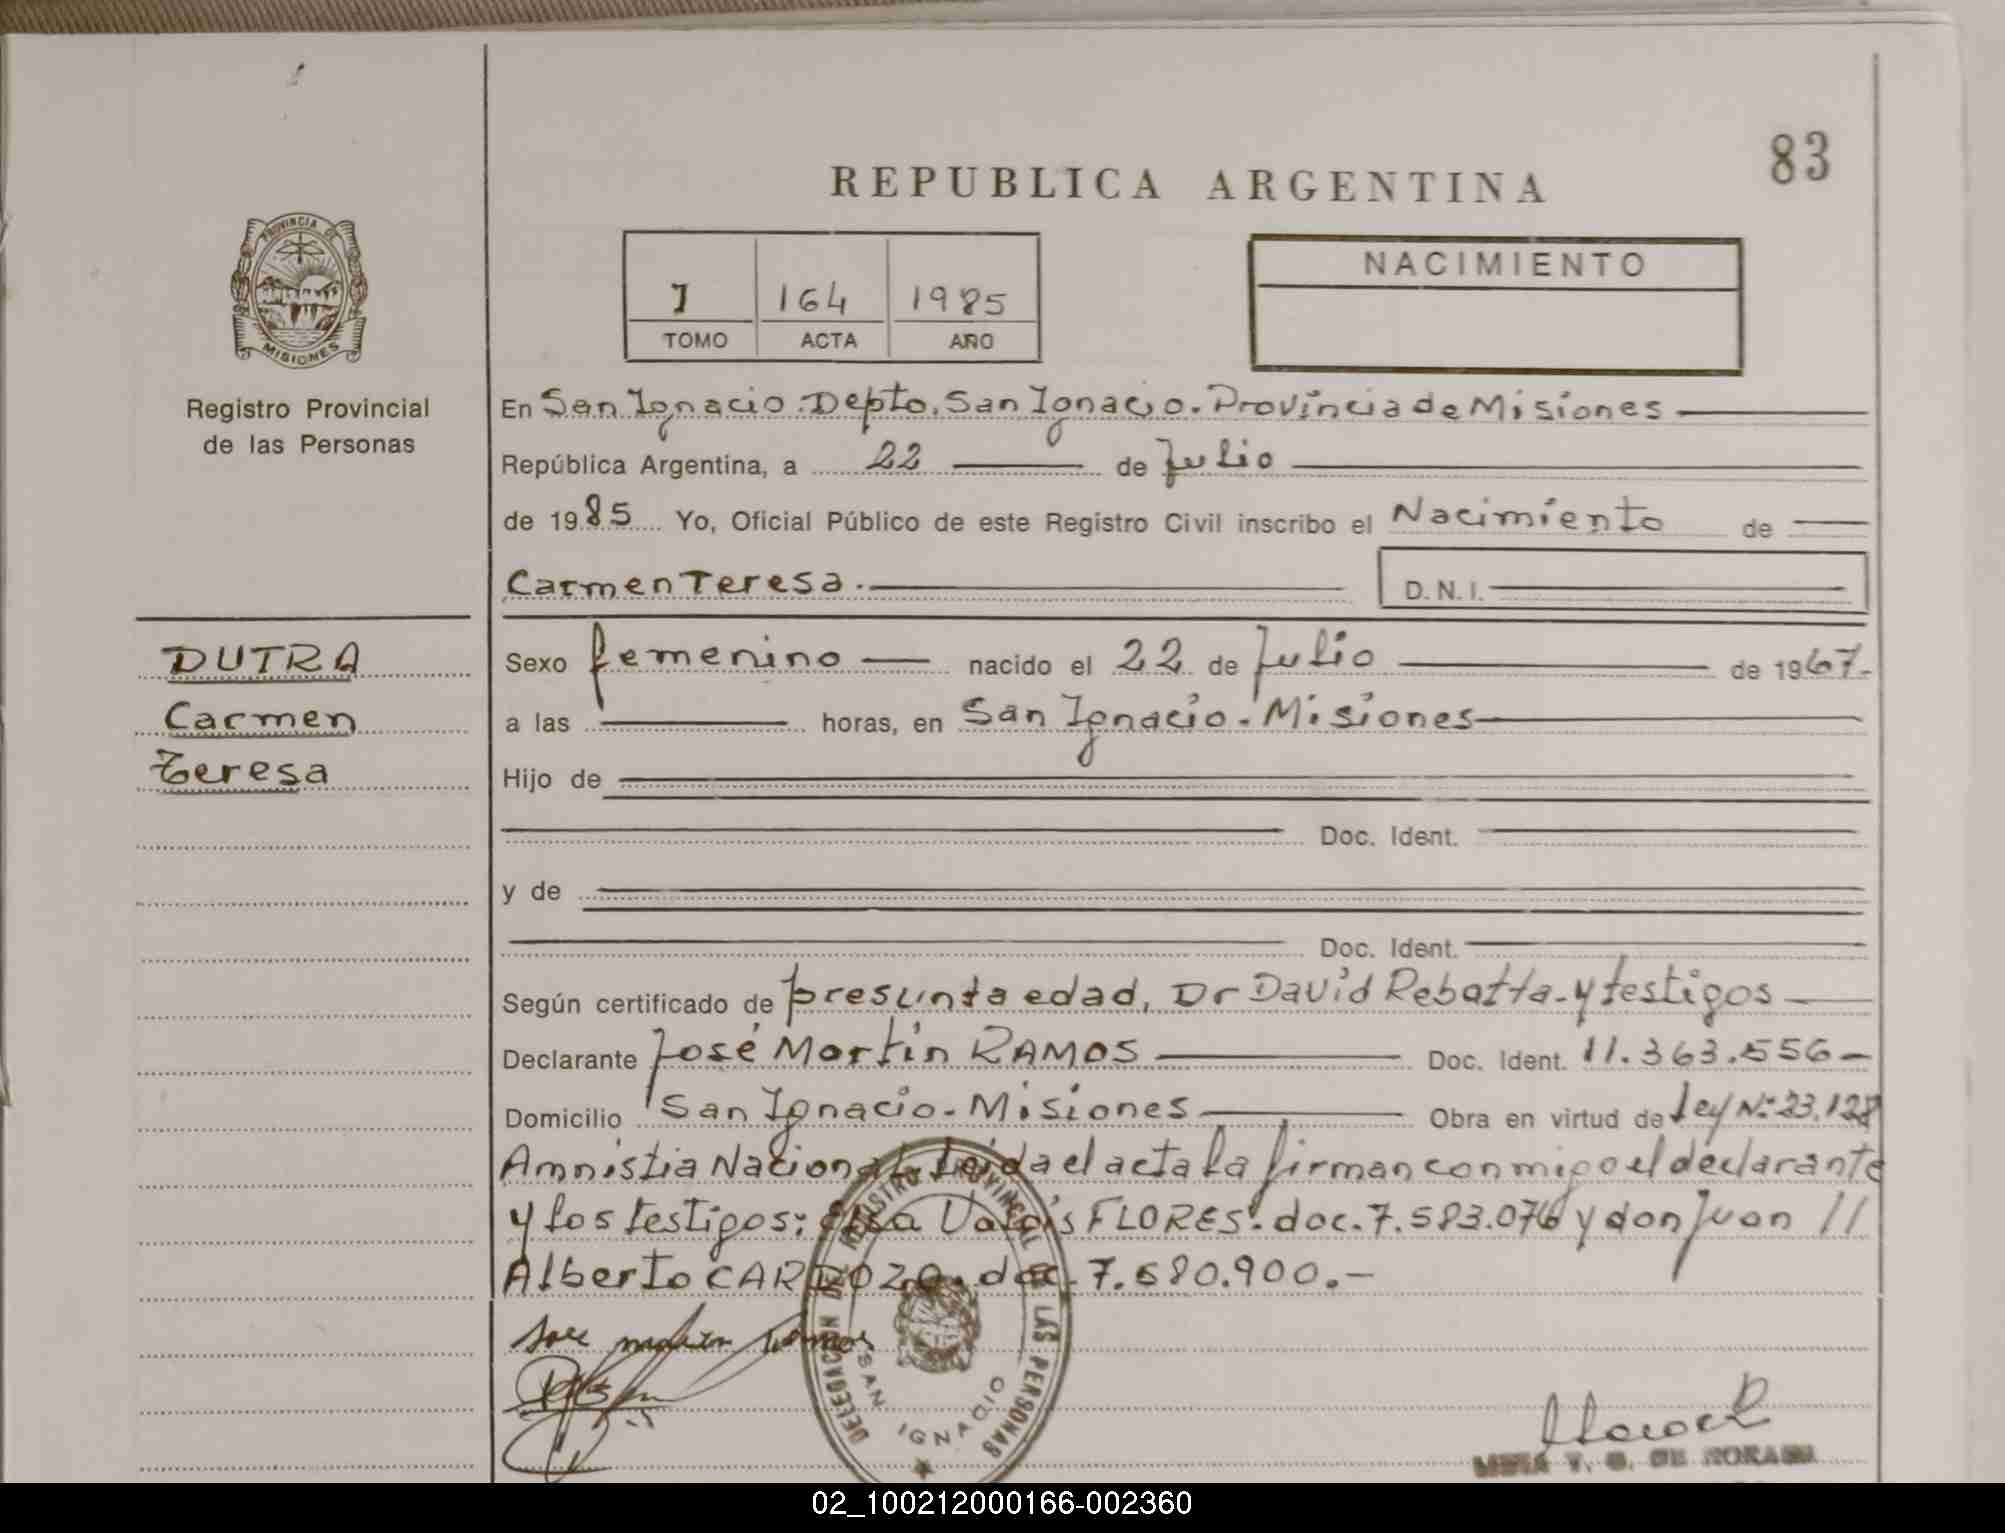 83
REPUBLICA ARGENTINA
PROVINCIA DE
MISIONES
Registro Provincial
de las Personas
I 164 1985
TOMO ACTA AÑO
NACIMIENTO
En San Ignacio. Depto. San Ignacio. Provincia de Misiones
República Argentina, a 22 de Julio
de 1985 Yo, Oficial Público de este Registro Civil inscribo el Nacimiento de
Carmen Teresa. D.N.I.
DUTRA
Carmen
Teresa
Sexo femenino nacido el 22 de Julio de 1967.
a las horas, en San Ignacio. Misiones
Hijo de
Doc. Ident.
y de
Doc. Ident.
Según certificado de presunta edad, Dr David Rebatta. y testigos
Declarante José Martín RAMOS Doc. Ident. 11.363.556
Domicilio San Ignacio. Misiones Obra en virtud de ley Nº 23.128
Amnistia Nacional. Leida el acta la firman conmigo el declarante
y los testigos: FLORES. doc. 7.583.076 y don Juan //
Alberto CARDOZO. doc. 7.580.900.-
DELEGACION DEL REGISTRO PROVINCIAL DE LAS PERSONAS
SAN IGNACIO
02_100212000166-002360